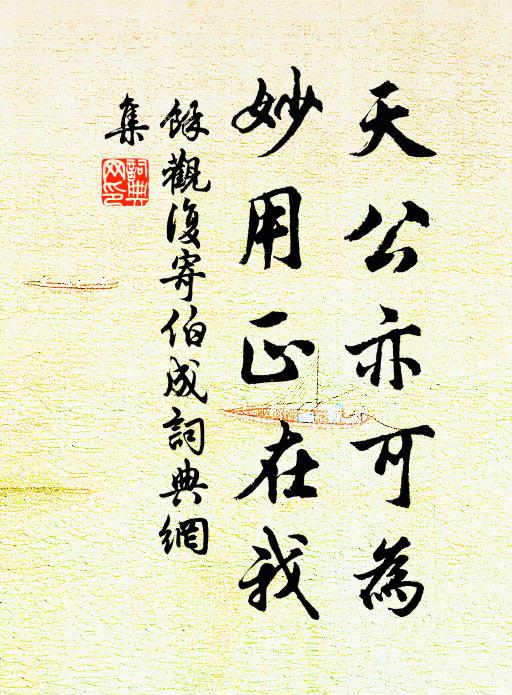 天公亦可為
妙用正在我
餘觀復寄伯成詞典網
集
詞典網印